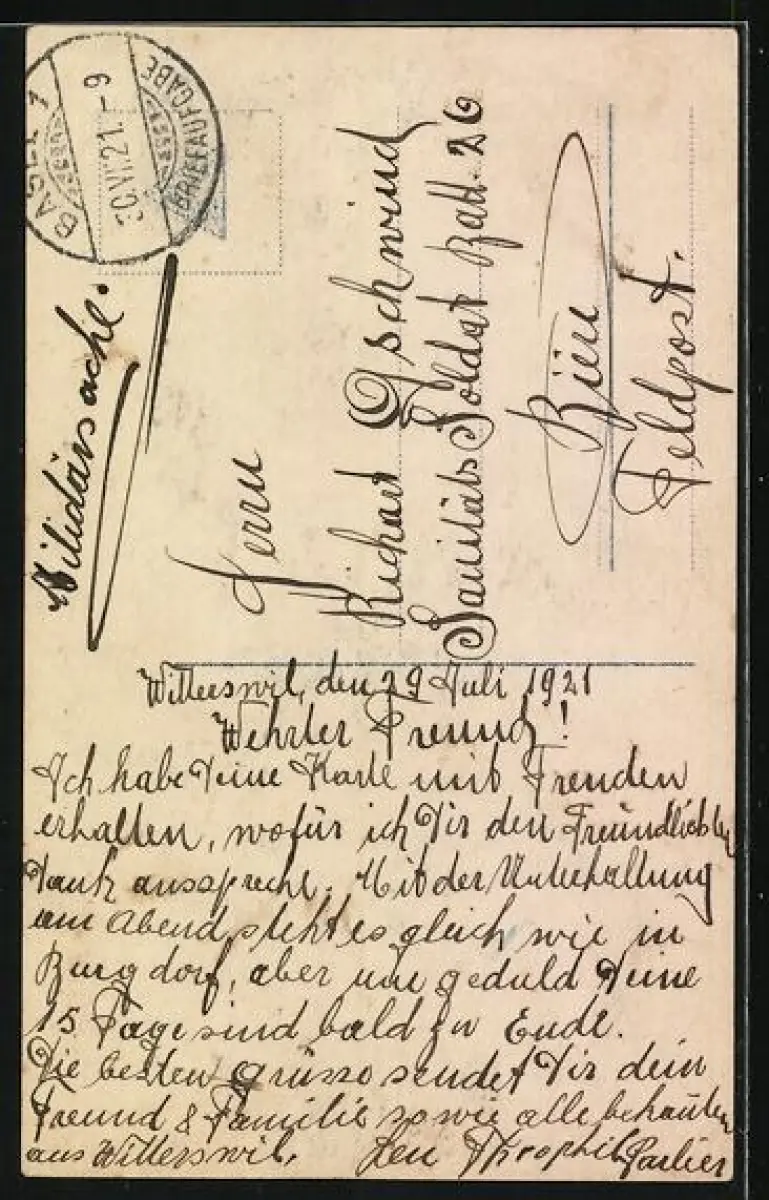 BASEL 1
30.VII.21.-9
BRIEFAUFGABE
Militärsache.
Herrn
Richart Gschwind
Sanitäts Soldat Batt. 26
Bieu
Feldpost.
Witterswil, den 29 Juli 1921
Wehrter Freund!
Ich habe Deine Karte mit Freuden
erhalten, wofür ich Dir den Freündlichsten
Dank ausspreche. Mit der Unterhaltung
am Abend steht es gleich wie in
Burgdorf, aber nur geduld Deine
15 Tage sind bald zu Ende.
Die besten grüsse sendet Dir dein
Freund & Familie sowie alle bekannten
aus Witterswil.